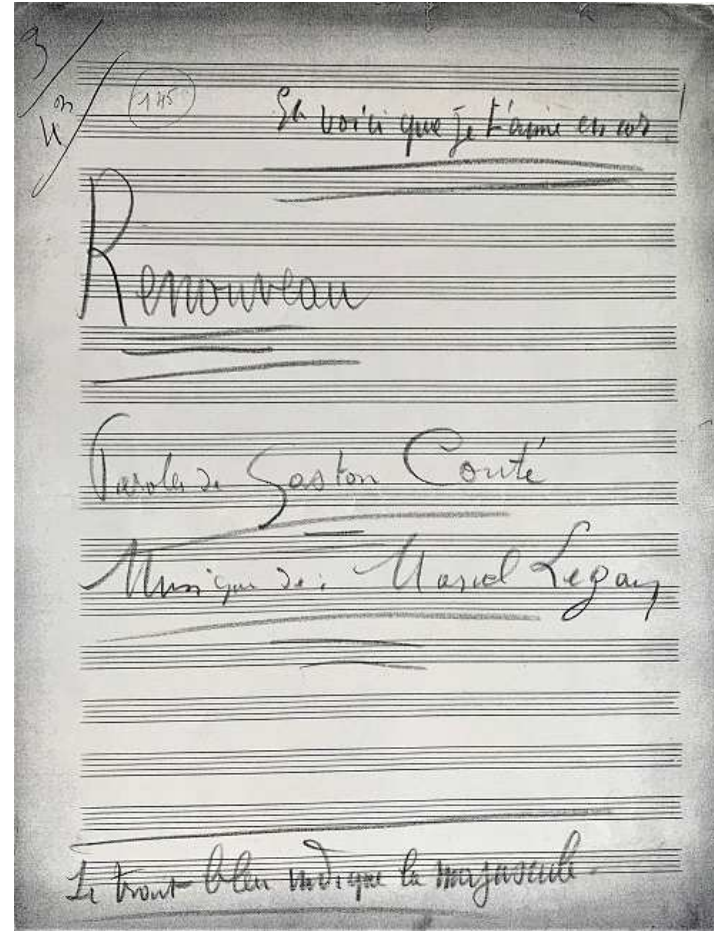 3/
4 on/
145
Et voici que je t'aime encor !
Renouveau
Paroles de Gaston Couté
Musique de : Marcel Legay
Le trait bleu indique la majuscule.